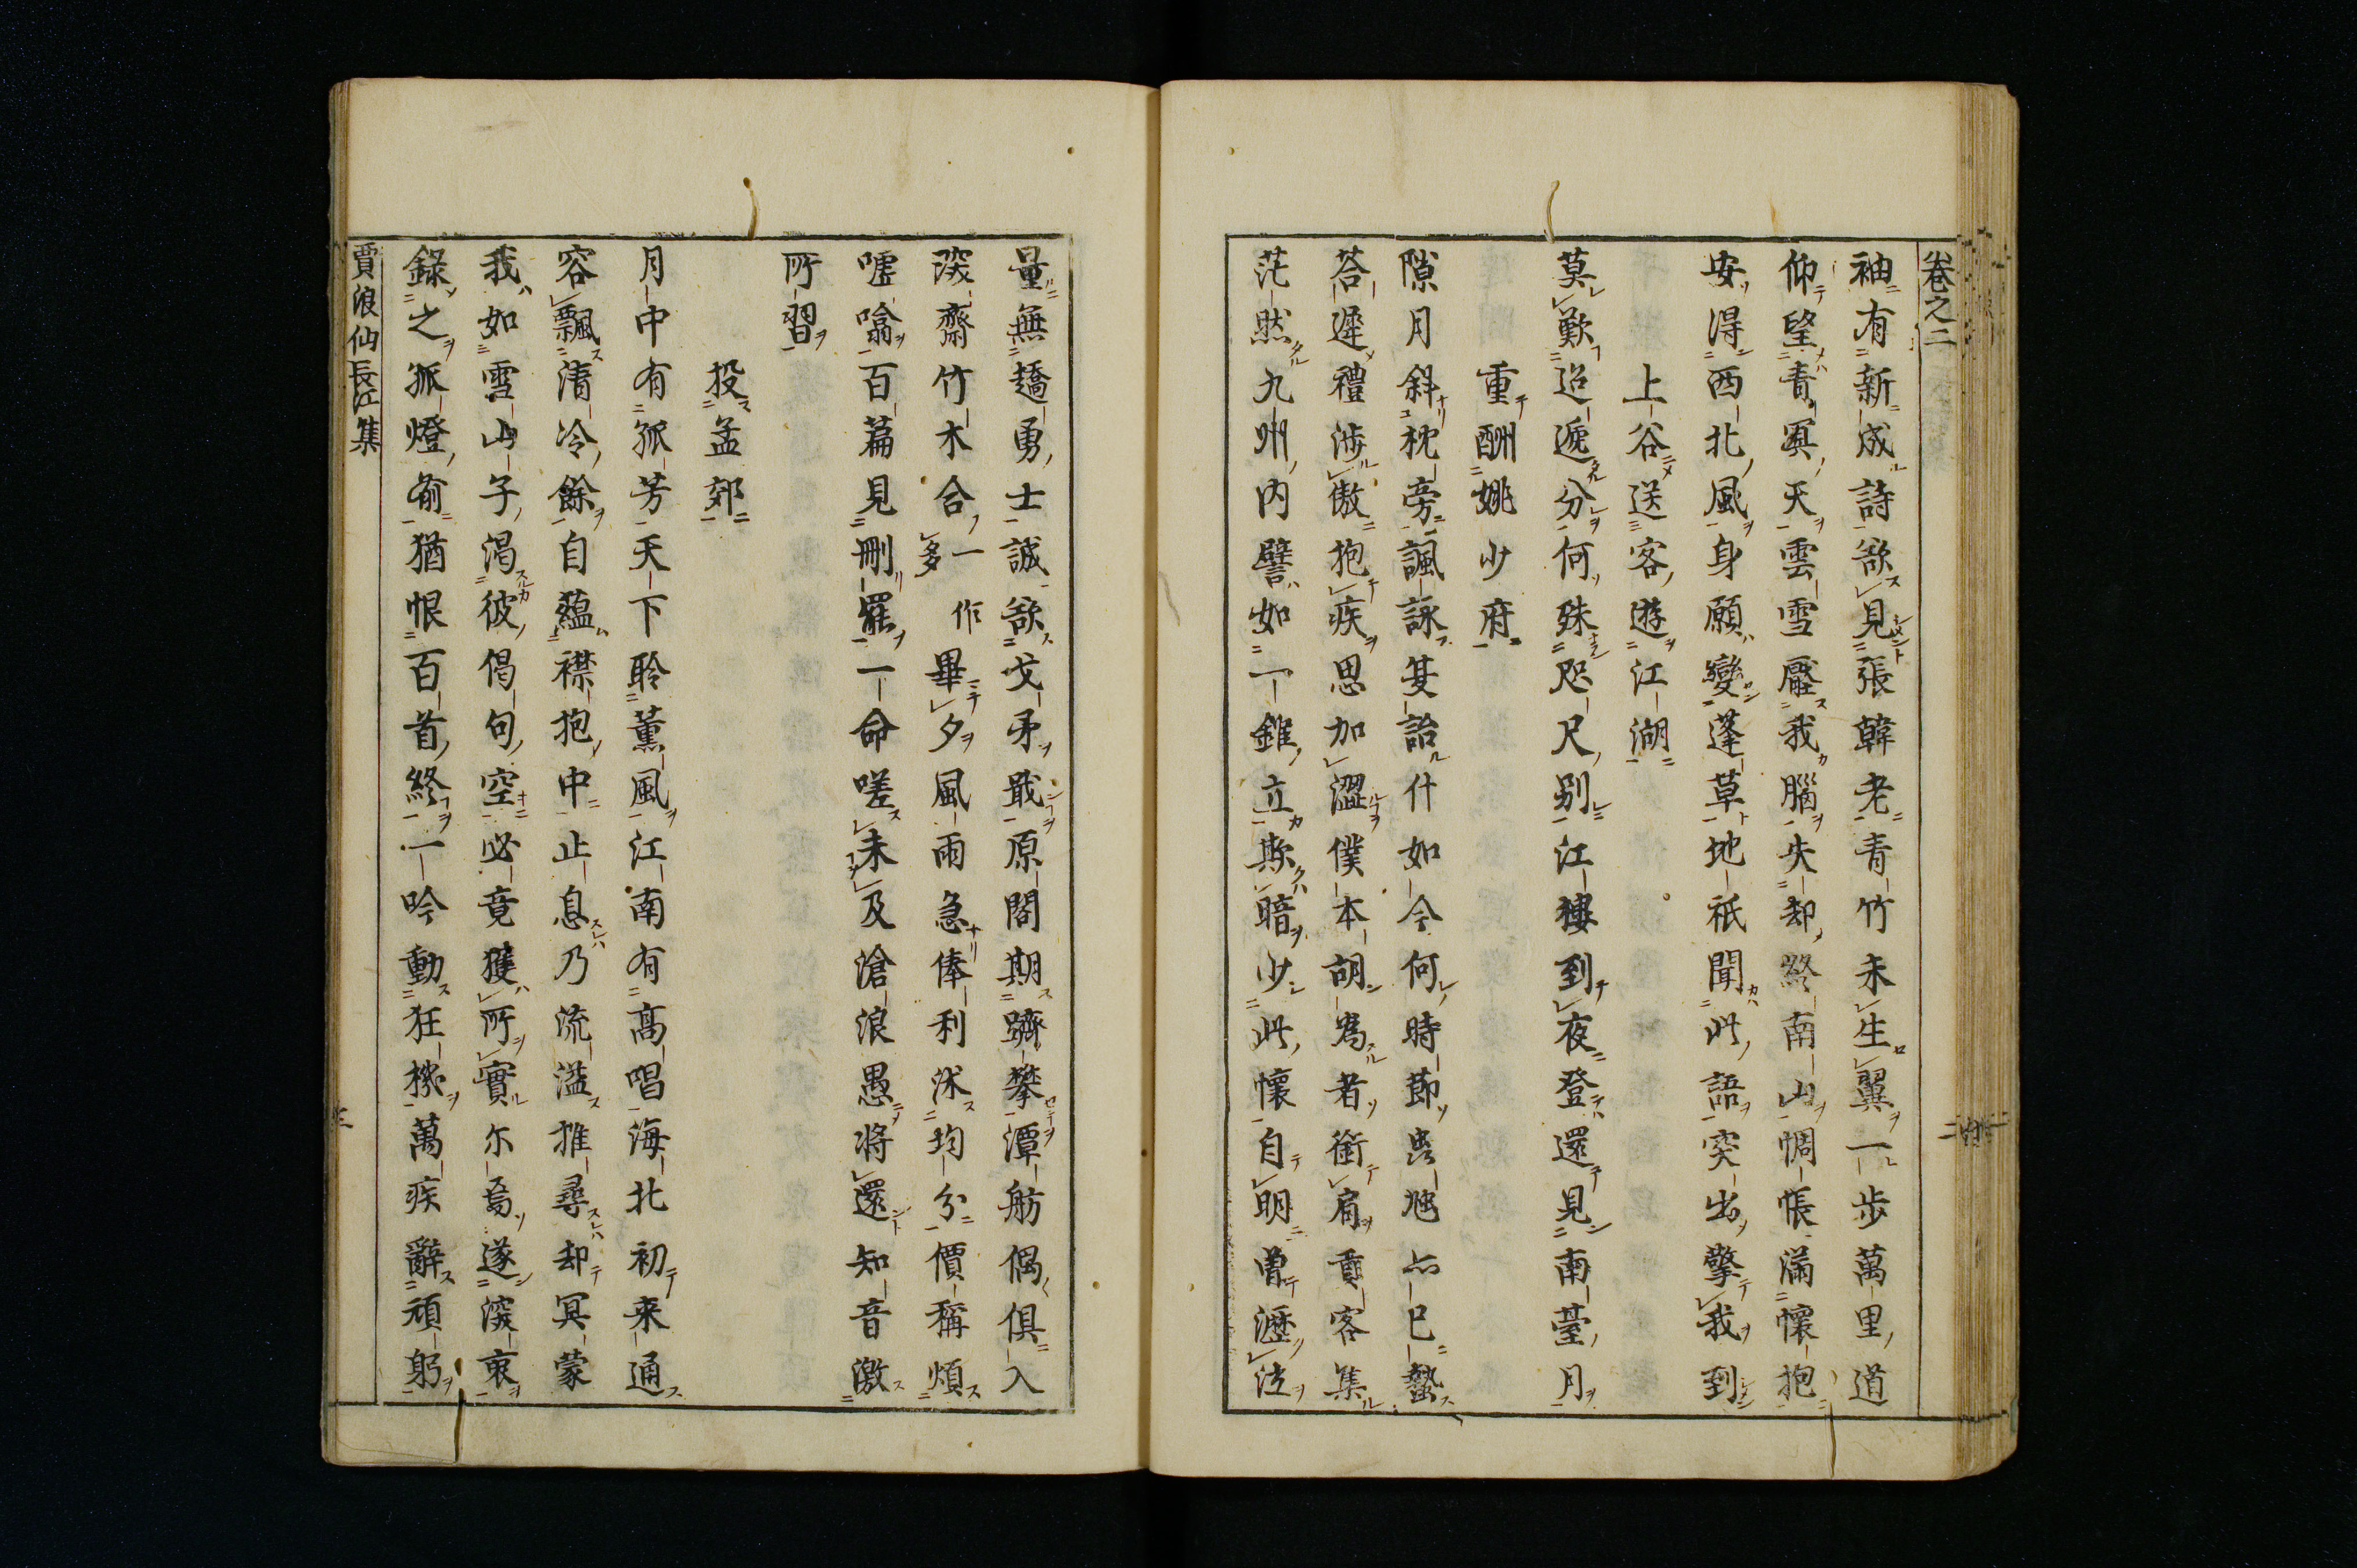 卷之二
袖有新成詩欲見張韓老青竹未生翼一步萬里道
仰望青冥天雲雪壓我腦失却終南山惆悵滿懷抱
安得西北風身願變蓬草地祇聞此語突出擎我到
上谷送客遊江湖
莫歎迢遞分何殊咫尺别江樓到夜登還見南臺月
重酬姚少府
隙月斜枕旁諷詠夏詒什如今何時節䖝虺亦已蟄
荅遲禮涉傲抱疾思加澀僕本胡爲者銜肩貢客集
茫然九州内譬如一錐立欺暗少此懷自明曽瀝泣
量無趫勇士誠欲戈矛戢原閣期躋攀潭舫偶俱入
深齋竹木合一作多畢夕風雨急俸利沭均分價稱煩
噓噏百篇見刪罷一命嗟未及滄浪愚將還知音激
所習
投孟郊
月中有孤芳天下聆薰風江南有高唱海北初来通
容飄清冷餘自蘊襟抱中止息乃流溢推尋却冥蒙
我如雪山子渴彼偈句空必竟獲所實尓焉遂深衷
錄之孤燈前猶恨百首終一吟動狂機萬疾辭頑躬
賈浪仙長江集